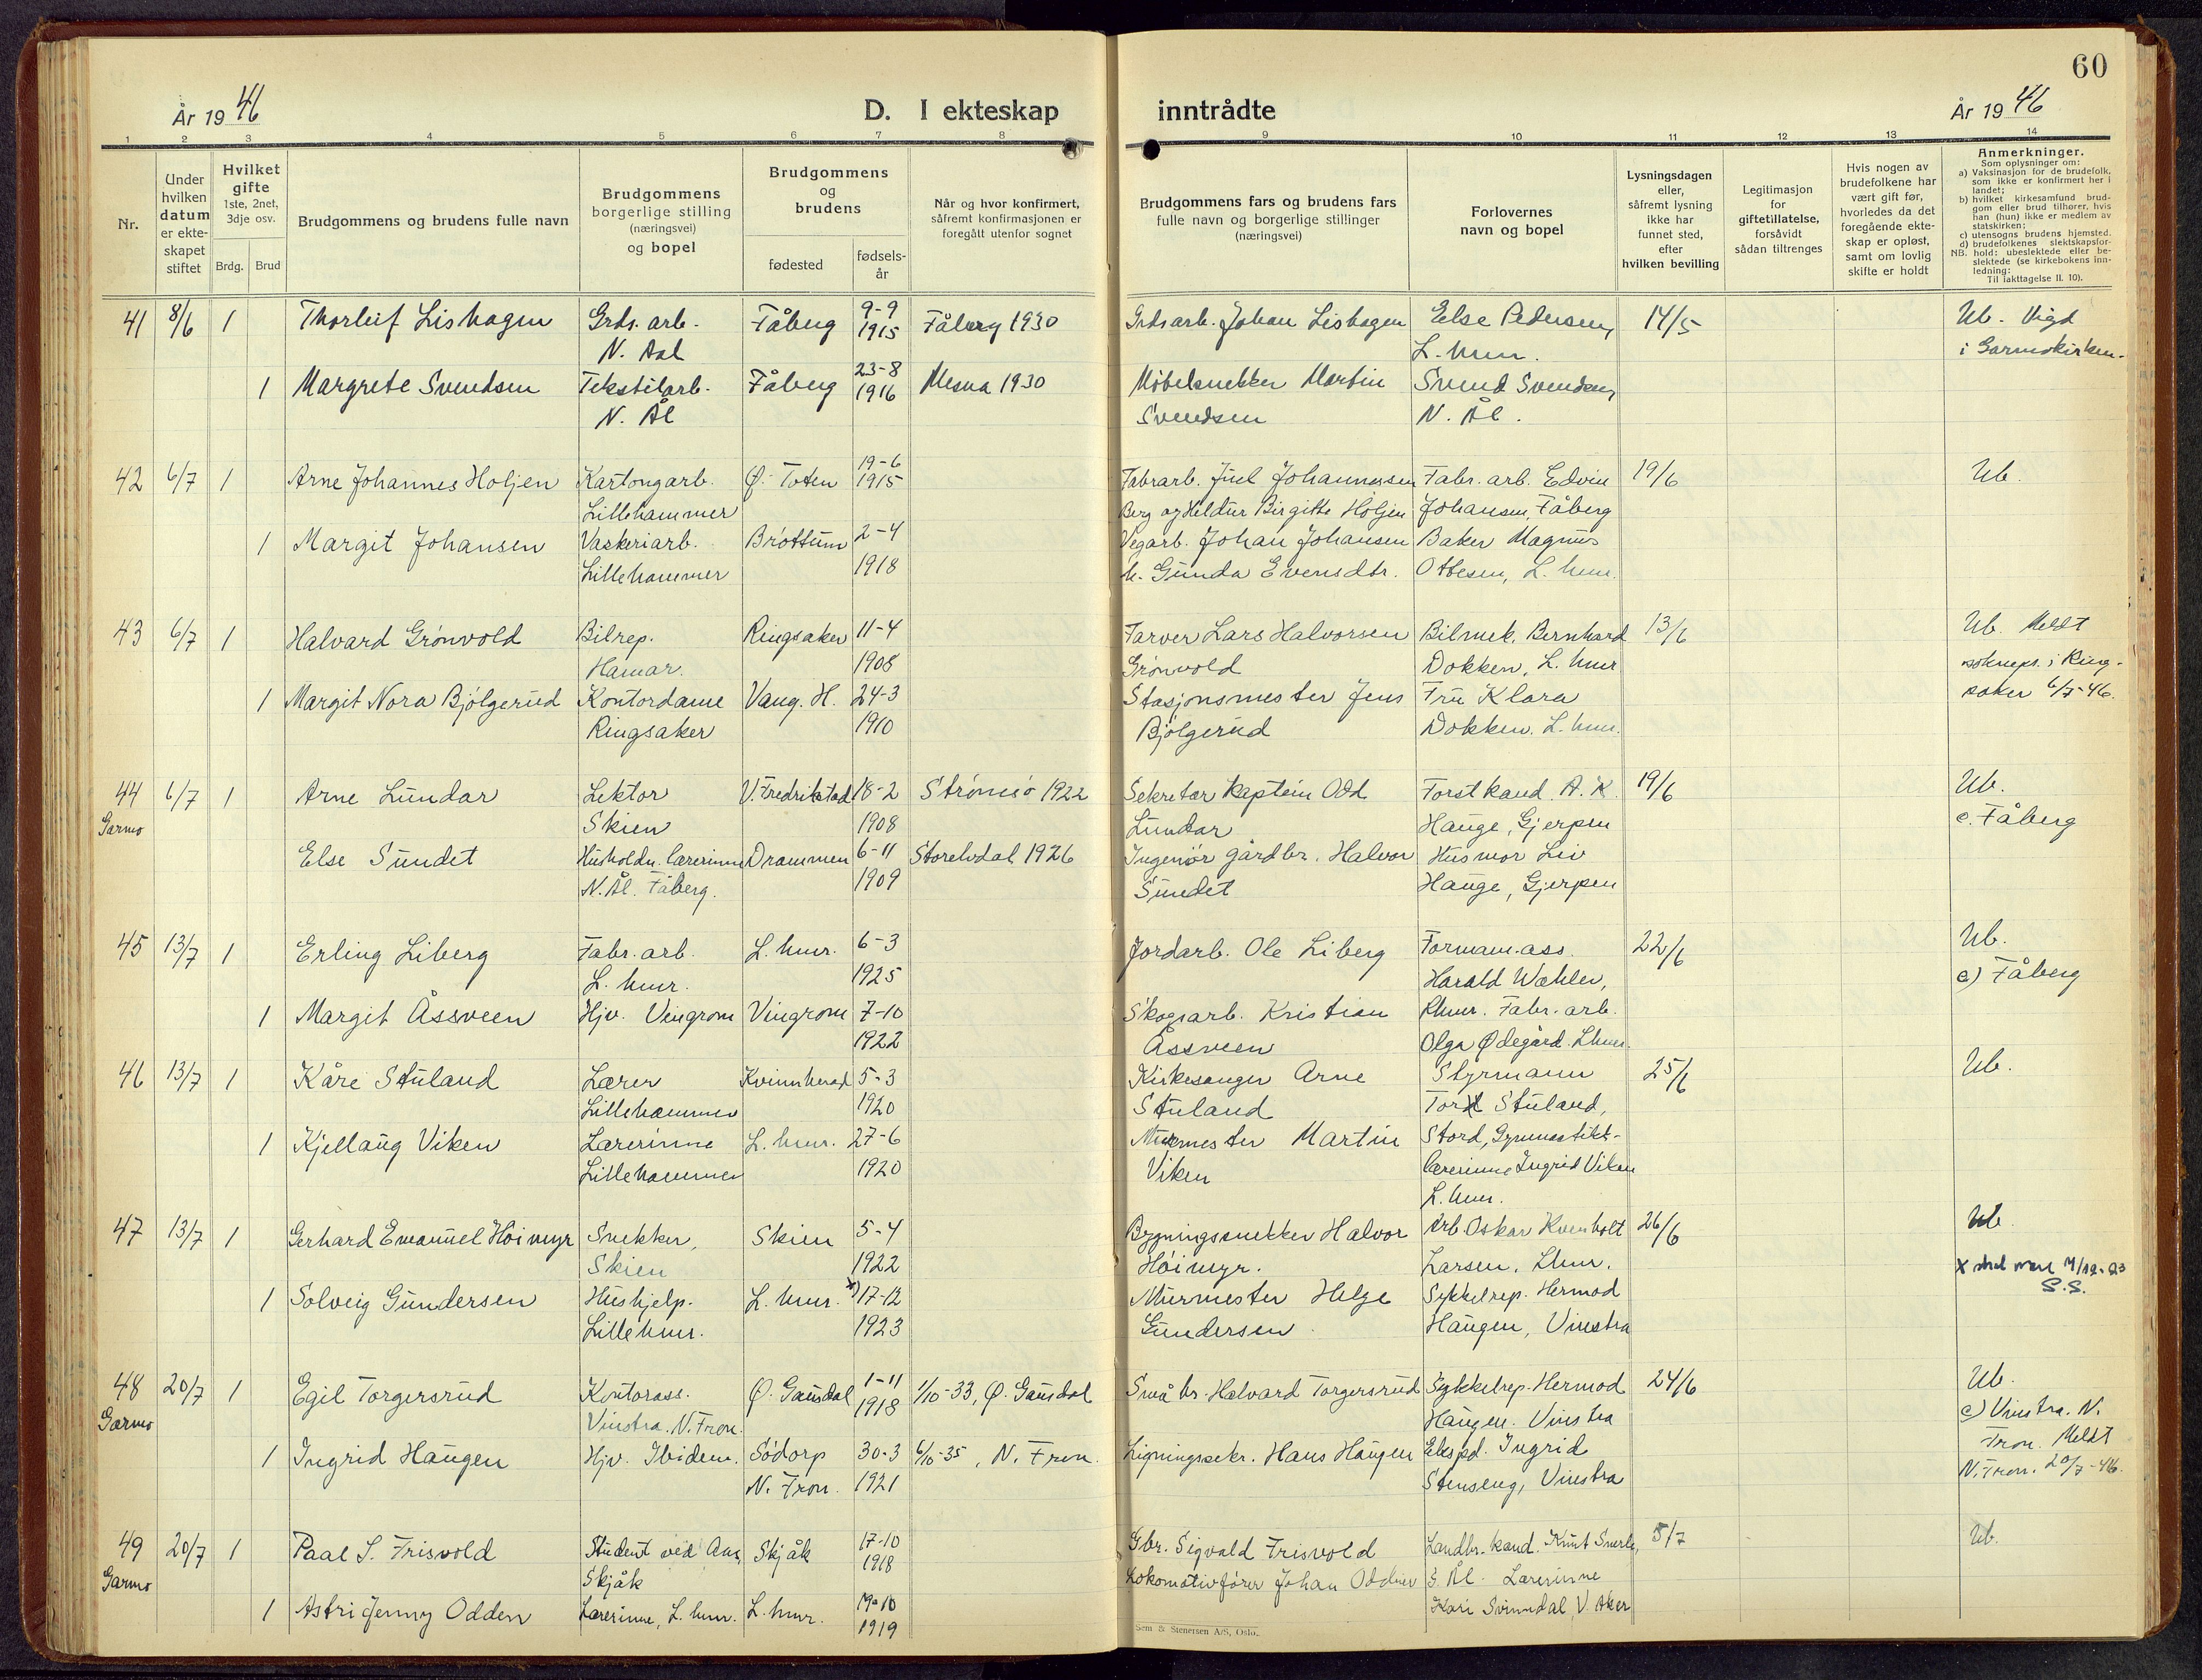 60
År 1946
D. I ekteskap inntrådte
År 1946
1 2 3 4 5 6 7 8 9 10 11 12 13 14
Nr.
Under hvilken datum er ekteskapet stiftet
Hvilket gifte 1ste, 2net, 3dje osv.
Brdg. Brud
Brudgommens og brudens fulle navn
Brudgommens borgerlige stilling (næringsvei) og bopel
Brudgommens og brudens
fødested
fødselsår
Når og hvor konfirmert, såfremt konfirmasjonen er foregått utenfor sognet
Brudgommens fars og brudens fars fulle navn og borgerlige stillinger (næringsvei)
Forlovernes navn og bopel
Lysningsdagen eller, såfremt lysning ikke har funnet sted, efter hvilken bevilling
Legitimasjon for giftetillatelse, forsåvidt sådan tiltrenges
Hvis nogen av brudefolkene har vært gift før, hvorledes da det foregående ekteskap er opløst, samt om lovlig skifte er holdt
Anmerkninger.
Som oplysninger om:
a) Vaksinasjon for de brudefolk, som ikke er konfirmert her i landet;
b) hvilket kirkesamfund brudgom eller brud tilhører, hvis han (hun) ikke er medlem av statskirken;
c) utensogns brudens hjemsted.
d) brudefolkenes slektskapsforhold: ubeslektede eller beslektede (se kirkebokens innledning:
NB. Til iakttagelse II. 10).
41 8/6 1 Thorleif Lishagen Grds. arb. Fåberg 9-9 Fåberg 1930 Grdsarb. Johan Lishagen Else Pedersen, 14/5 Ub. Vigd
N. Aal 1915 L. hmr. i Garmokirken.
1 Margrete Svendsen Tekstilarb. Fåberg 23-8 Mesna 1930 Møbelsnekker Martin Svend Svendsen,
N. Ål 1916 Svendsen N. Ål.
42 6/7 1 Arne Johannes Holjen Kartongarb. Ø. Toten 19-6 Fabrarb. Juel Johannessen Fabr. arb. Edvin 19/6 Ub.
Lillehammer 1915 Berg og Heldur Birgitte Holjen Johansen, Fåberg
1 Margit Johansen Vaskeriarb. Brøttum 2-4 Vegarb. Johan Johansen Baker Magnus
Lillehammer 1918 h. Gunda Evensdtr. Ottesen, L. hmr.
43 6/7 1 Halvard Grønvold Bilrep. Ringsaker 11-4 Farver Lars Halvorsen Bilmek. Bernhard 13/6 Ub. Meldt
Hamar. 1908 Grønvold Dokken, L. hmr soknepr. i Ring-
1 Margit Nora Bjølgerud Kontordame Vang. H. 24-3 Stasjonsmester Jens Fru Klara saker 6/7-46.
Ringsaker 1910 Bjølgerud Dokken. L. hmr.
44 6/7 1 Arne Lundar Lektor V. Fredrikstad 18-2 Strømsø 1922 Sekretær kaptein Odd Forstkand. A. K. 19/6 Ub.
Garmo Skien 1908 Lundar Hauge, Gjerpen c. Fåberg
Else Sundet Husholdn. lærerinne Drammen 6-11 Storelvdal 1926 Ingeniør gårdbr. Halvor Husmor Liv
N. Ål. Fåberg. 1909 Sundet Hauge, Gjerpen
45 13/7 1 Erling Liberg Fabr. arb. L. hmr. 6-3 Jordarb. Ole Liberg Formann. ass. 22/6 Ub.
L. hmr. 1925 Harald Wæhler, c) Fåberg
1 Margit Åssveen Hjv. Vingrom Vingrom 7-10 Skogsarb. Kristian Lhmr. Fabr. arb.
1922 Åssveen Olga Ødegård. Lhmr.
46 13/7 1 Kåre Stuland Lærer Kvinnherad 5-3 Kirkesanger Arne Styrmann 25/6 Ub.
Lillehammer 1920 Stuland Stuland,
1 Kjellaug Viken Lærerinne L. hmr. 27-6 Murmester Martin Stord, Gymnastikk-
Lillehammer 1920 Viken lærerinne Ingrid Viken
L. hmr.
47 13/7 1 Gerhard Emanuel Høimyr Snekker, Skien 5-4 Bygningssnekker Halvor Arb. Oskar Kvenholt 26/6 Ub.
Skien 1922 Høimyr. Larsen. Lhmr. x skal være 7/12-23
1 Solveig Gundersen Hushjelp. L. hmr. x) 17-12 Murmester Helge Sykkelrep. Hermod S.S.
Lillehmr. 1923 Gundersen Haugen, Vinstra
48 20/7 1 Egil Torgersrud Kontorass. Ø. Gausdal 1-11 1/10-33, Ø. Gausdal Småbr. Halvard Torgersrud Sykkelrep. Hermod 24/6 Ub.
Garmo Vinstra. N. Fron. 1918 Haugen. Vinstra c) Vinstra. N.
1 Ingrid Haugen Hjv. Ibidem. Sødorp 30-3 6/10-35, N. Fron. Ligningssekr. Hans Haugen Eksped. Ingrid Fron. Meldt
N. Fron. 1921 Stenseng, Vinstra N. Fron. 20/7-46.
49 20/7 1 Paal S. Frisvold Student ved Aas, Skjåk 17-10 Gbr. Sigvald Frisvold Landbr. kand. Knut Snerle, 5/7 Ub.
Garmo Skjåk 1918 Lokomotivfører Johan Odden S. Ål. Lærerinne
1 Astri Jenny Odden Lærerinne, L. hmr. L. hmr. 19-10 Kari Svinndal, V. Aker
1919
Sem & Stenersen A/S, Oslo.